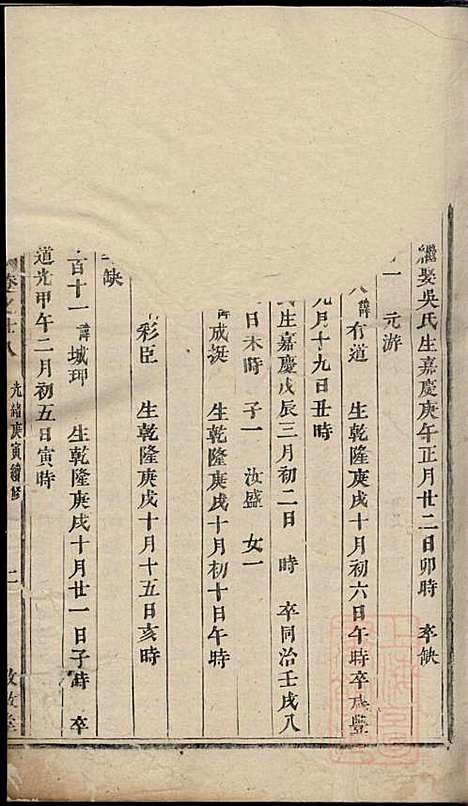 繼娶吳氏生嘉慶庚午正月廿二日卯時 卒缺
一 元游
諱有道 生乾隆庚戌十月初六日午時卒咸豐
九月十九日丑時
氏生嘉慶戊辰三月初二日 時 卒同治壬戌八
日未時 子一 汝盛 女一
諱成涎 生乾隆庚戌十月初十日午時
缺
彩臣 生乾隆庚戌十月十五日亥時
百十一 諱城玾 生乾隆庚戌十月廿一日子時 卒
道光甲午二月初五日寅時
卷之廿八 光緒庚寅續修 二